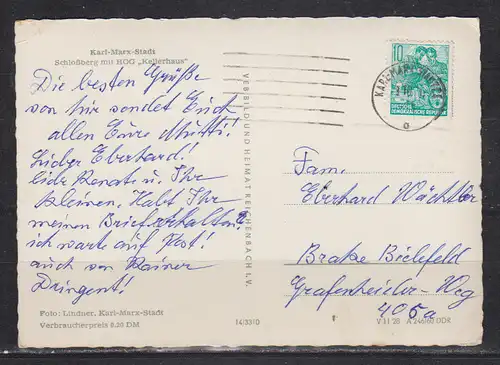 Karl-Marx-Stadt
Schloßberg mit HOG „Kellerhaus"
Die besten Grüße
von hir sendet Euch
allen Eure Mutti!
Lieber Eberhard!
liebe Renate u. Ihr
kleinen. Habt Ihr
meinen Brief erhalten?
ich warte auf Post!
auch von Rainer
Dringent!
Foto: Lindner, Karl-Marx-Stadt
Verbraucherpreis 0,20 DM
VEB BILD UND HEIMAT REICHENBACH I. V.
14/3310
10
DEUTSCHE
DEMOKRATISCHE REPUBLIK
KARL-MARX-STADT
Fam.
Eberhard Wächtler
Brake Bielefeld
Grafenheider-Weg
405a
V 11 28 A 246/60 DDR